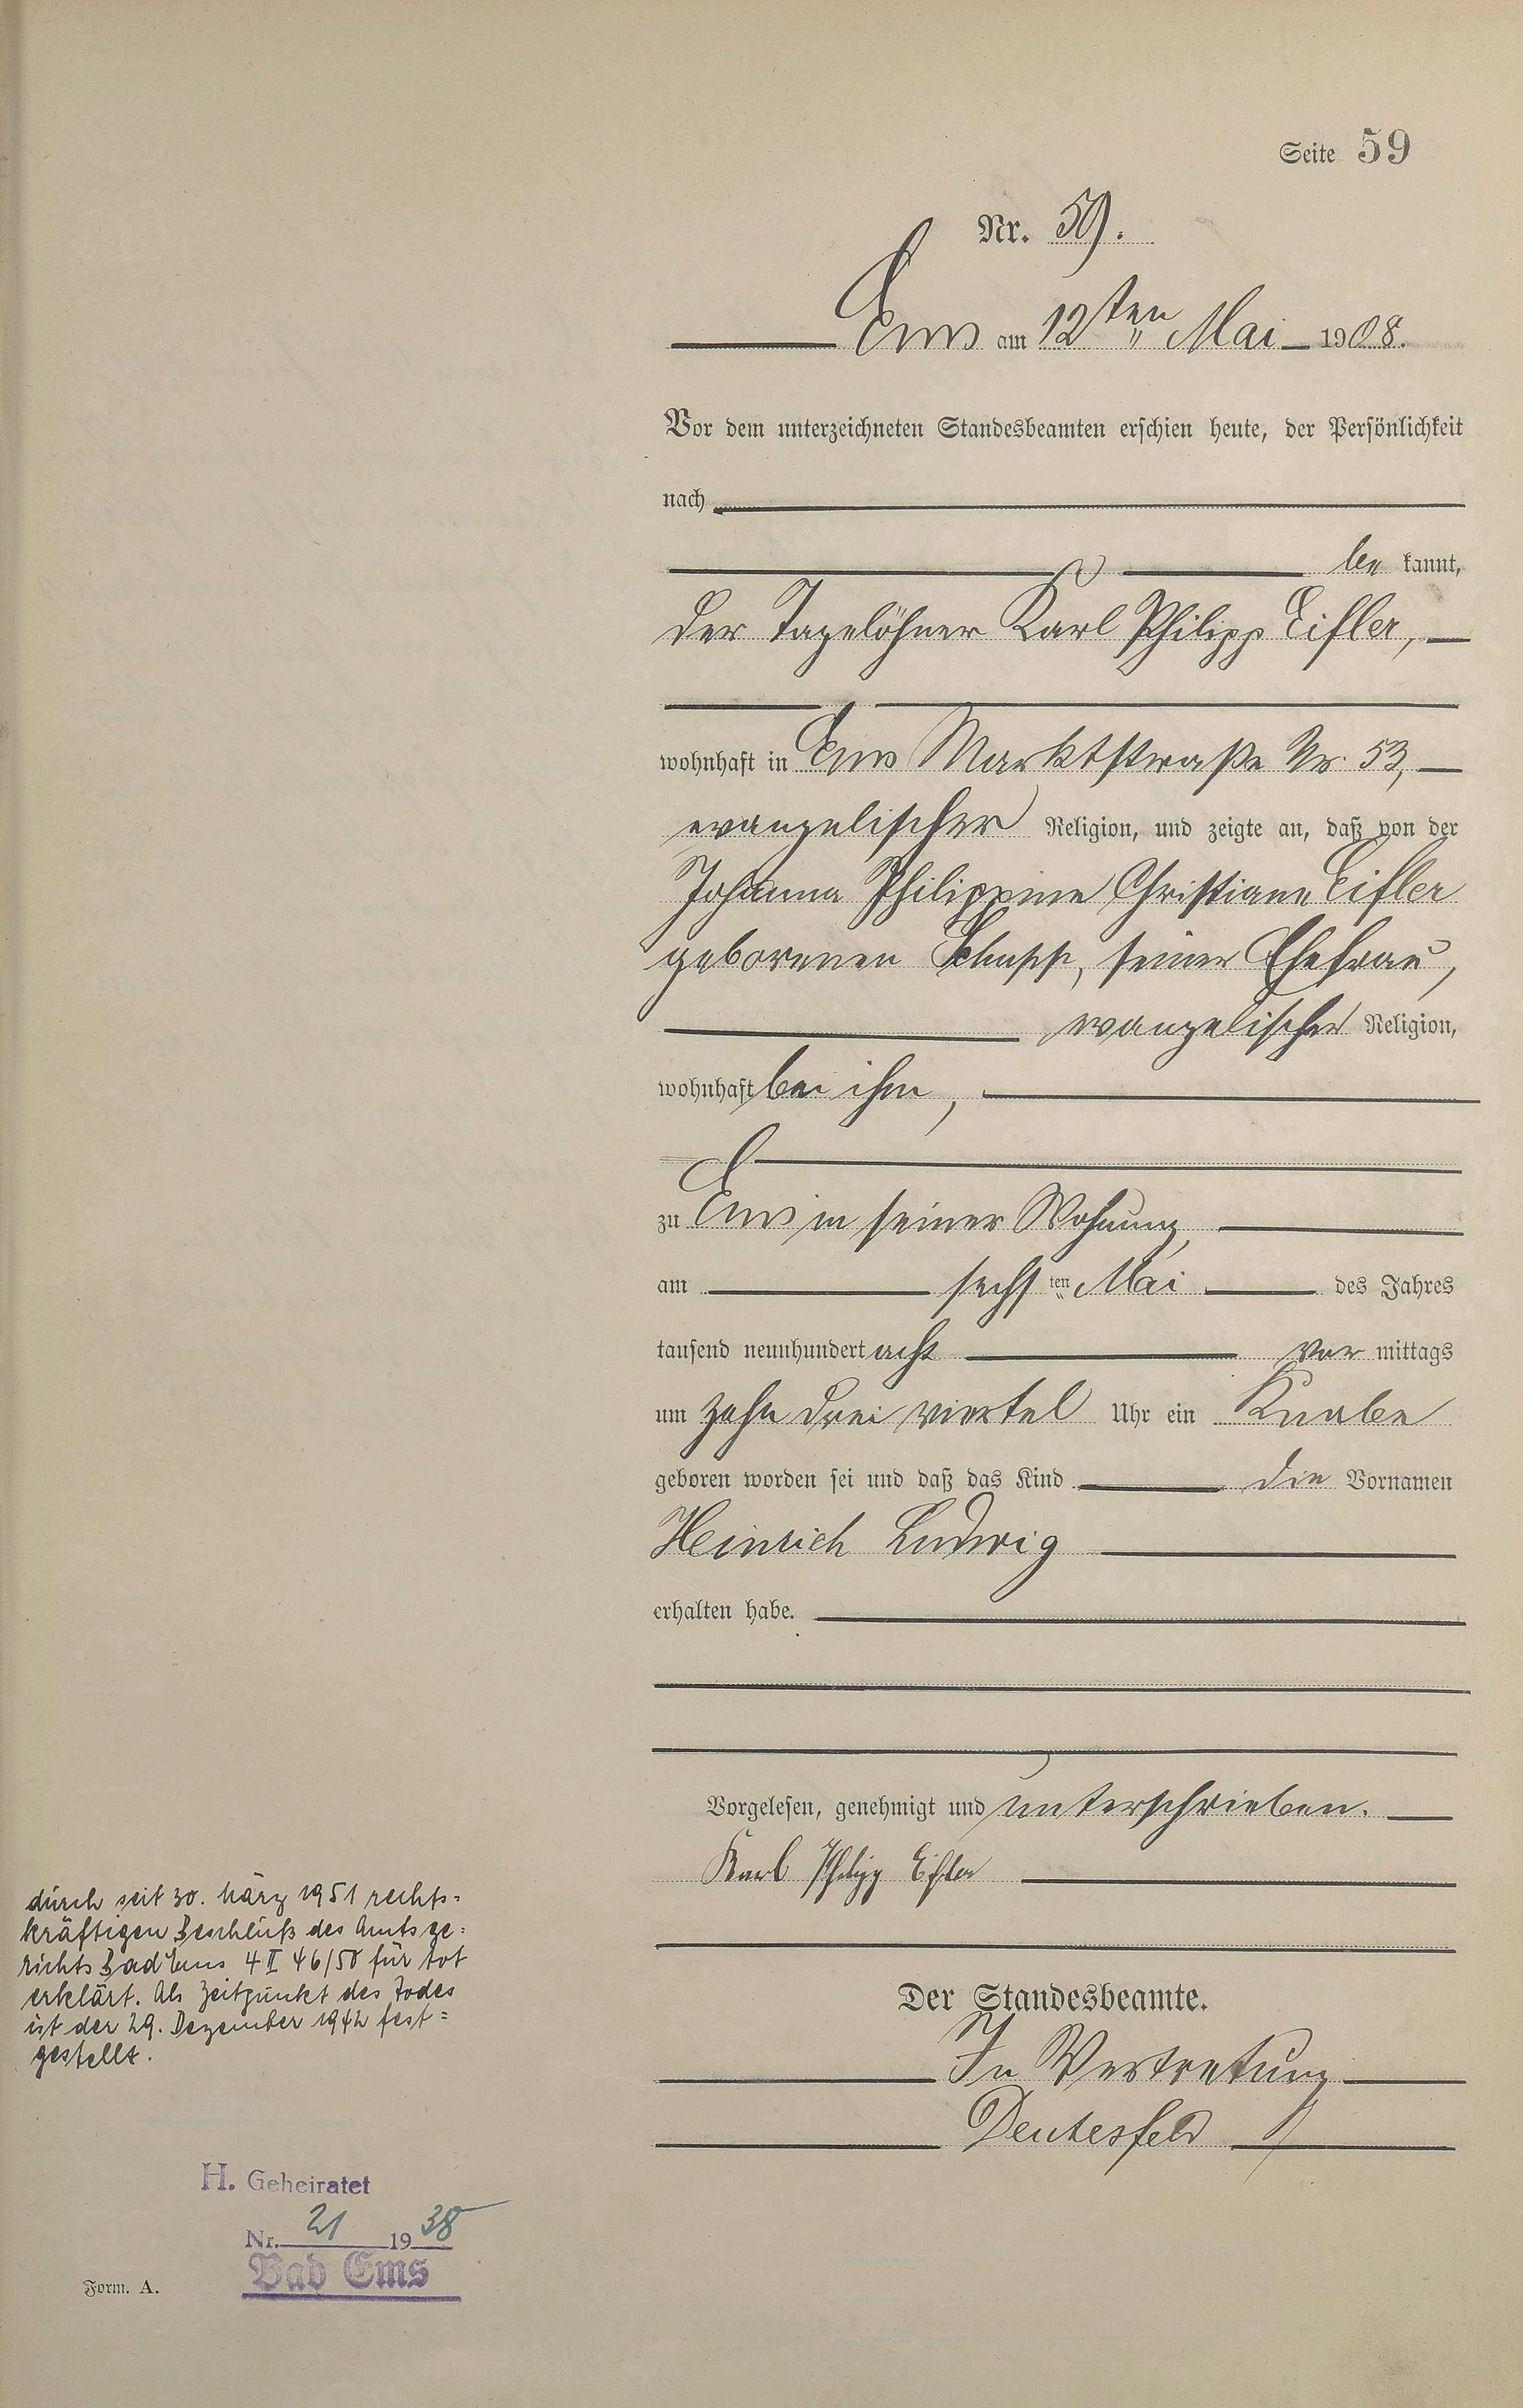 Seite 59
Nr. 59.
Ems am 12ten Mai 1908.
Vor dem unterzeichneten Standesbeamten erschien heute, der Persönlichkeit
nach
be kannt,
der Tagelöhner Karl Philipp Eifler,
wohnhaft in Ems Marktstraße Nr. 53,
evangelischer Religion, und zeigte an, daß von der
Johanna Philippine Christiane Eifler
geborenen Schupp, seiner Ehefrau,
evangelischer Religion,
wohnhaft bei ihm,
zu Ems in seiner Wohnung,
am sechsten Mai des Jahres
tausend neunhundert acht vor mittags
um zehn drei viertel Uhr ein Knabe
geboren worden sei und daß das Kind die Vornamen
Heinrich Ludwig
erhalten habe.
Vorgelesen, genehmigt und unterschrieben.
Karl Philipp Eifler
Der Standesbeamte.
In Vertretung
Deutesfeld
durch seit 30. März 1951 rechts=
kräftigen Beschluß des Amtsge=
richts Bad Ems 4 II 46/50 für tot
erklärt. Als Zeitpunkt des Todes
ist der 29. Dezember 1942 fest=
gestellt.
H. Geheiratet
Nr. 21 1938
Bad Ems
Form. A.